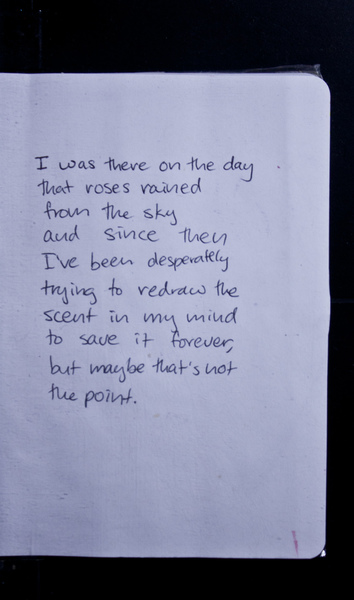 I was there on the day
that roses rained
from the sky
and since then
I've been desperately
trying to redraw the
scent in my mind
to save it forever,
but maybe that's not
the point.